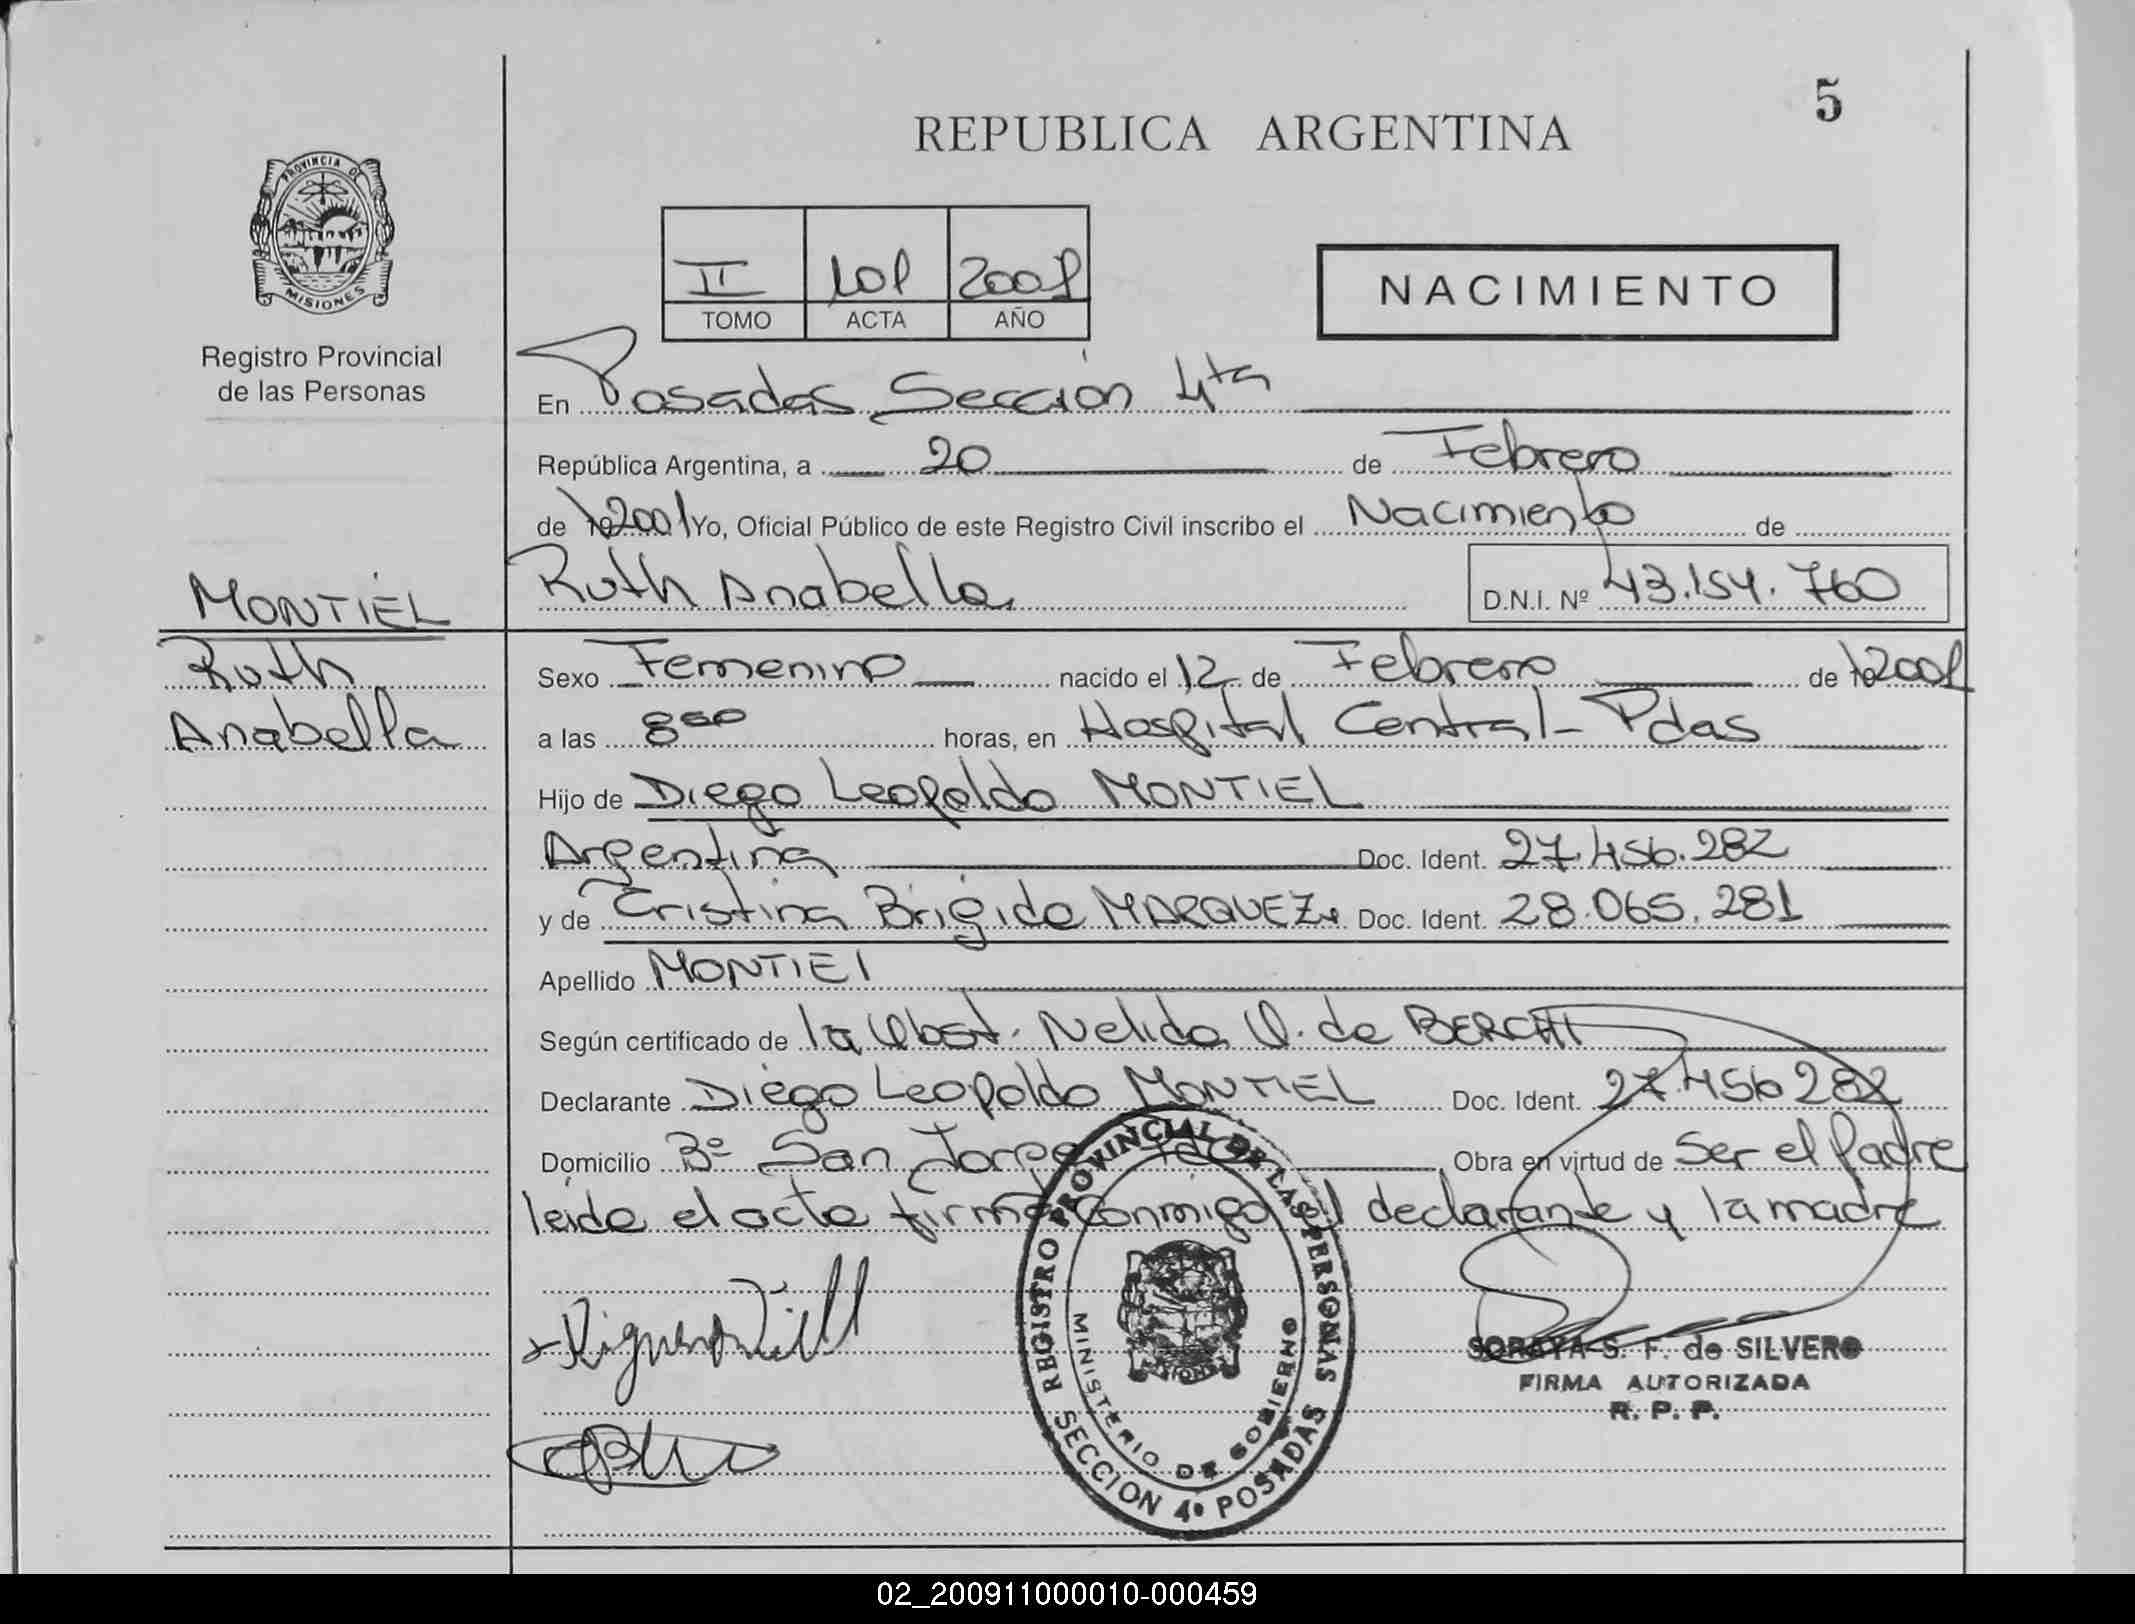 5
REPUBLICA ARGENTINA
PROVINCIA DE
MISIONES
Registro Provincial
de las Personas
II 101 2001
TOMO ACTA AÑO
NACIMIENTO
En Posadas Sección 4ta
República Argentina, a 20 de Febrero
de 2001 Yo, Oficial Público de este Registro Civil inscribo el Nacimiento de
Ruth Anabella D.N.I. Nº 43.154.760
MONTIEL
Ruth
Anabella
Sexo Femenino nacido el 12 de Febrero de 2001
a las 8 horas, en Hospital Central - Pdas
Hijo de Diego Leopoldo MONTIEL
Argentina Doc. Ident. 27.456.282
y de Cristina Brigida MARQUEZ Doc. Ident. 28.065.281
Apellido MONTIEL
Según certificado de la Obst. Nelida Q. de BERCHI
Declarante Diego Leopoldo MONTIEL Doc. Ident. 27.456282
Domicilio Bº San Jorge Obra en virtud de Ser el Padre
leida el acta firma conmigo el declarante y la madre
REGISTRO PROVINCIAL DE LAS PERSONAS
MINISTERIO DE GOBIERNO
SECCION 4º POSADAS
SORAYA S. F. de SILVERO
FIRMA AUTORIZADA
R. P. P.
02_200911000010-000459